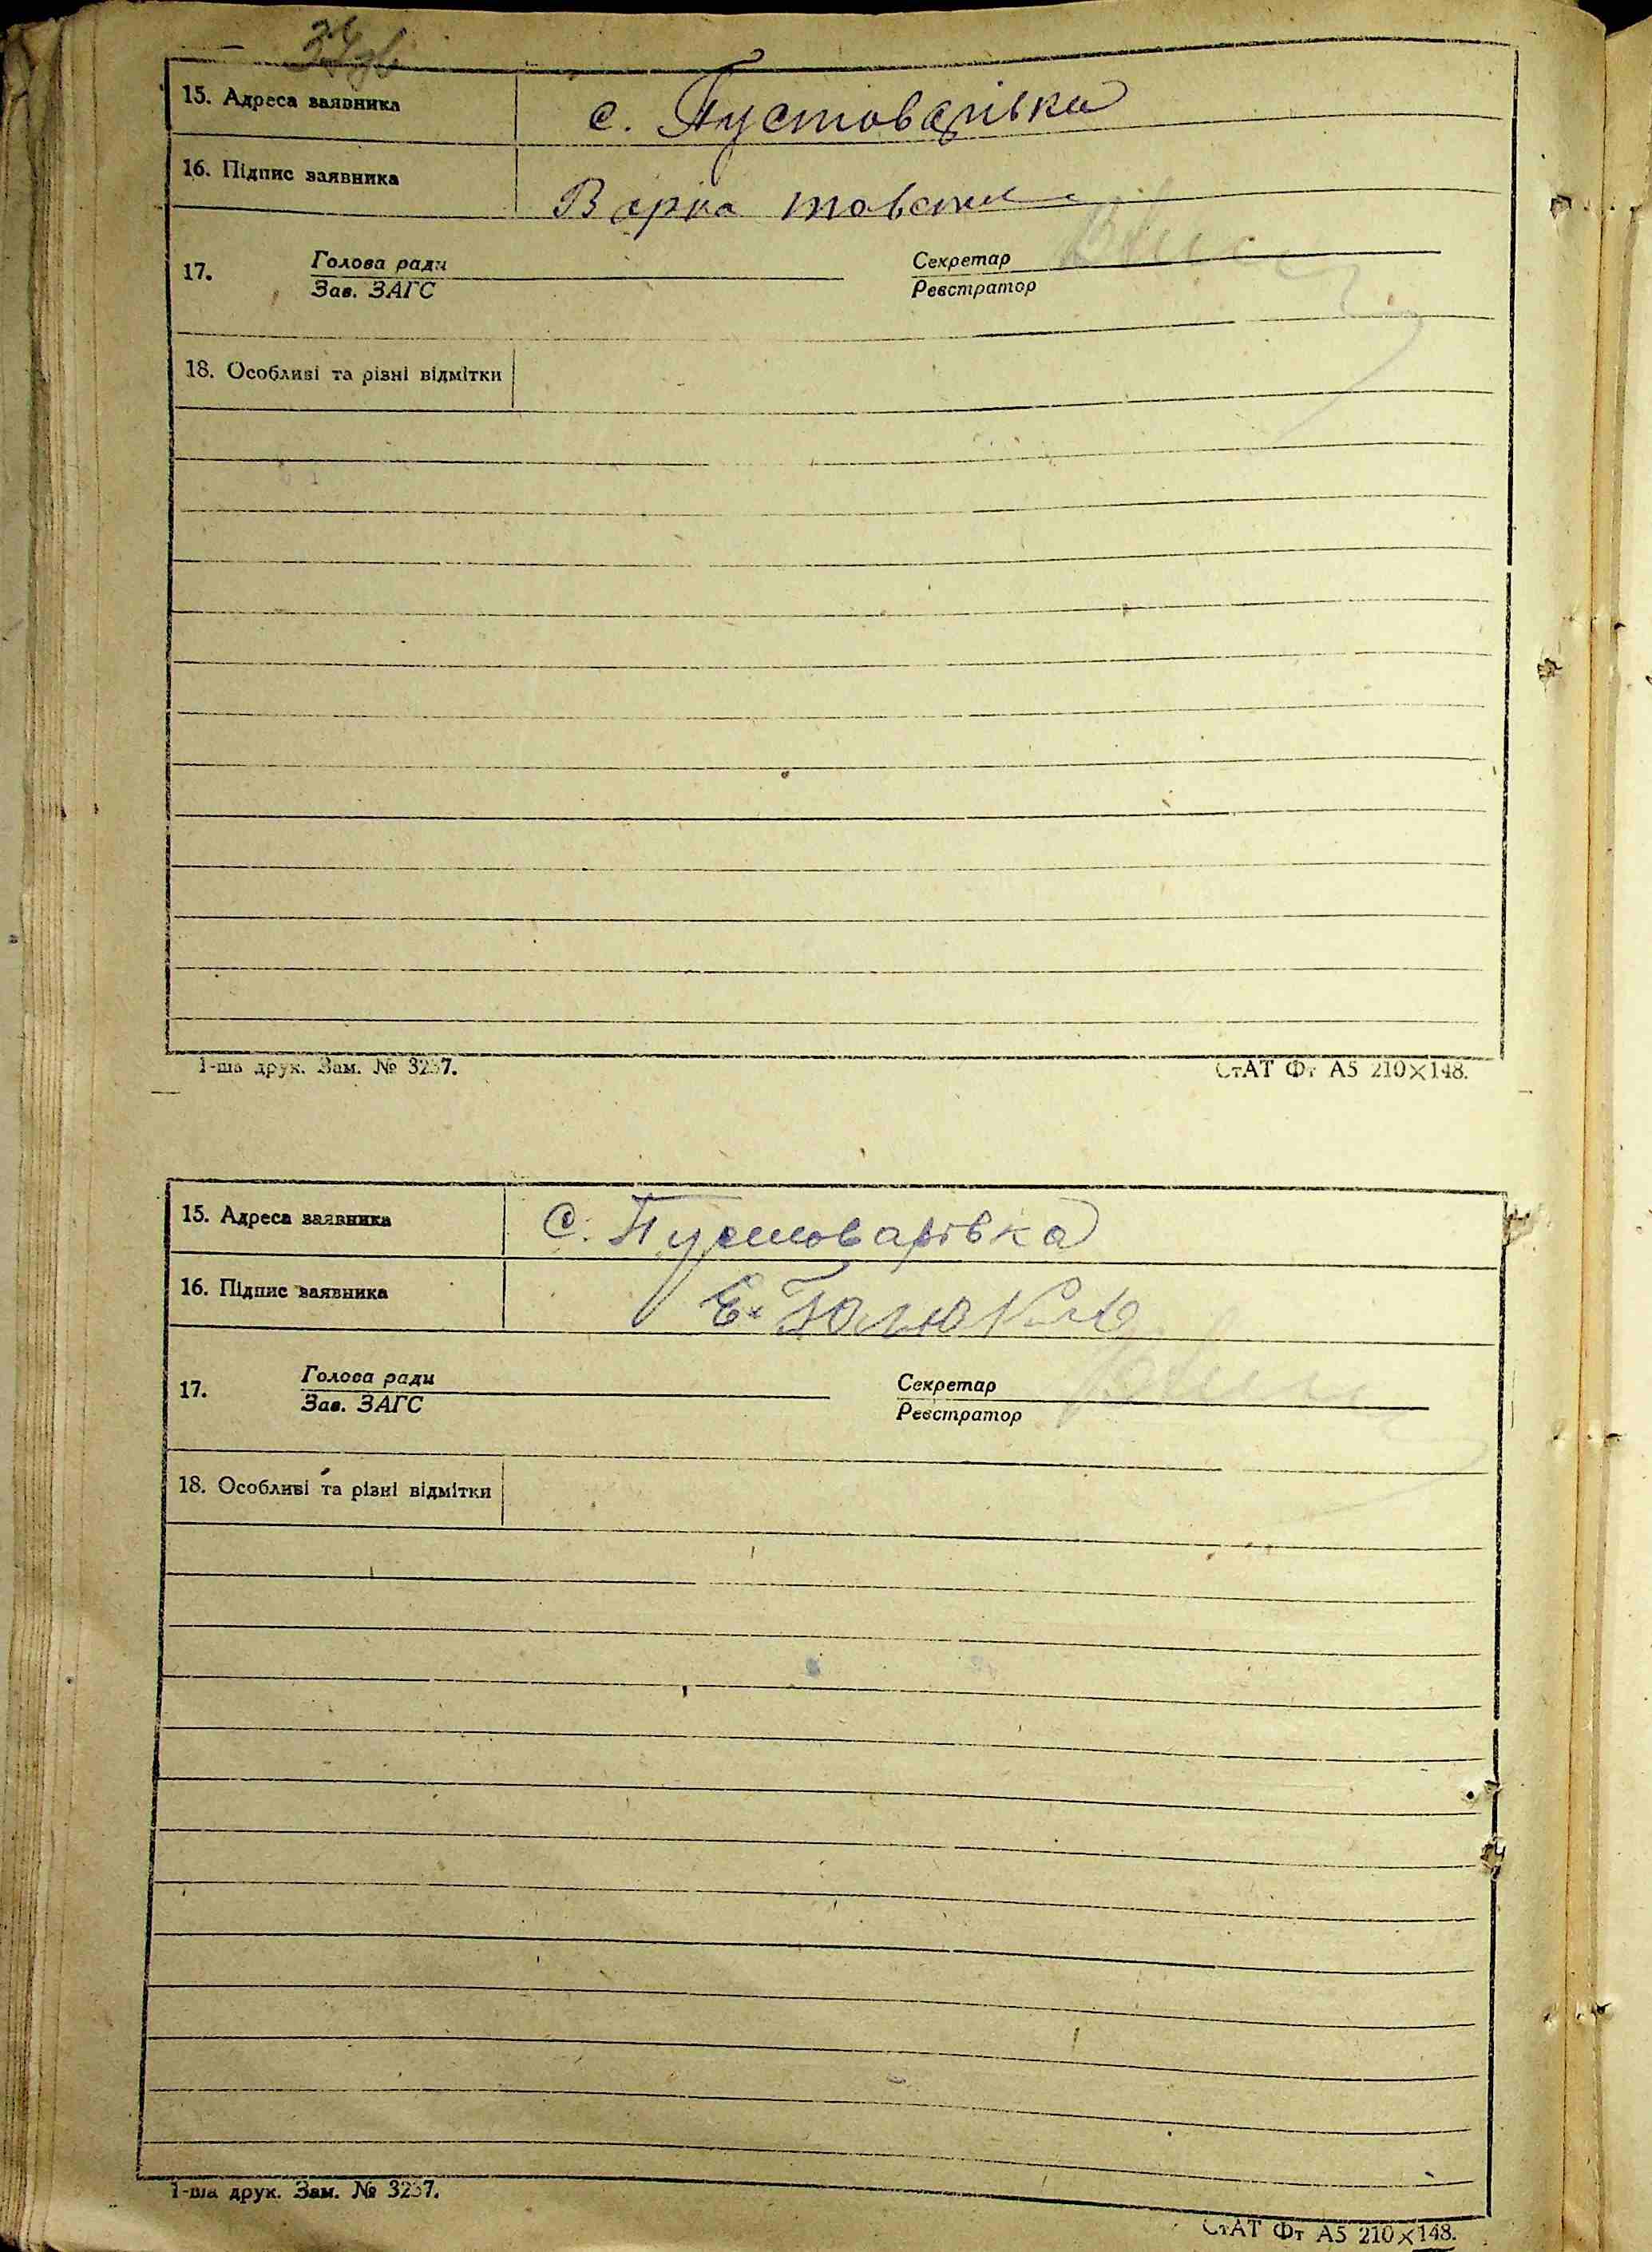 15. Адреса заявника с. Пустоварівка
16. Підпис заявника Варка товсти
17. Голова ради Секретар
Зав. ЗАГС Реєстратор
18. Особливі та різні відмітки
1-ша друк. Зам. № 3237.
СтАТ Фт А5 210×148.
15. Адреса заявника С. Пустоварівка
16. Підпис заявника Е.
17. Голова ради Секретар
Зав. ЗАГС Реєстратор
18. Особливі та різні відмітки
1-ша друк. Зам. № 3237.
СтАТ Фт А5 210×148.